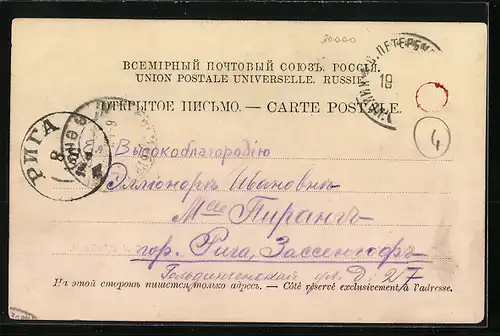 30000
ВСЕМІРНЫЙ ПОЧТОВЫЙ СОЮЗЪ. РОССІЯ.
UNION POSTALE UNIVERSELLE. RUSSIE
ОТКРЫТОЕ ПИСЬМО. — CARTE POSTALE.
ПЕТЕРБ
19
4
РИГА
8
Высокоблагородію
Элліонорѣ Ивановнѣ
Mlle Пирангъ
гор. Рига, Зассенгофъ
Гольдингенская ул. Д: 27
На этой сторонѣ пишется только адресъ. — Côté réservé exclusivement à l'adresse.